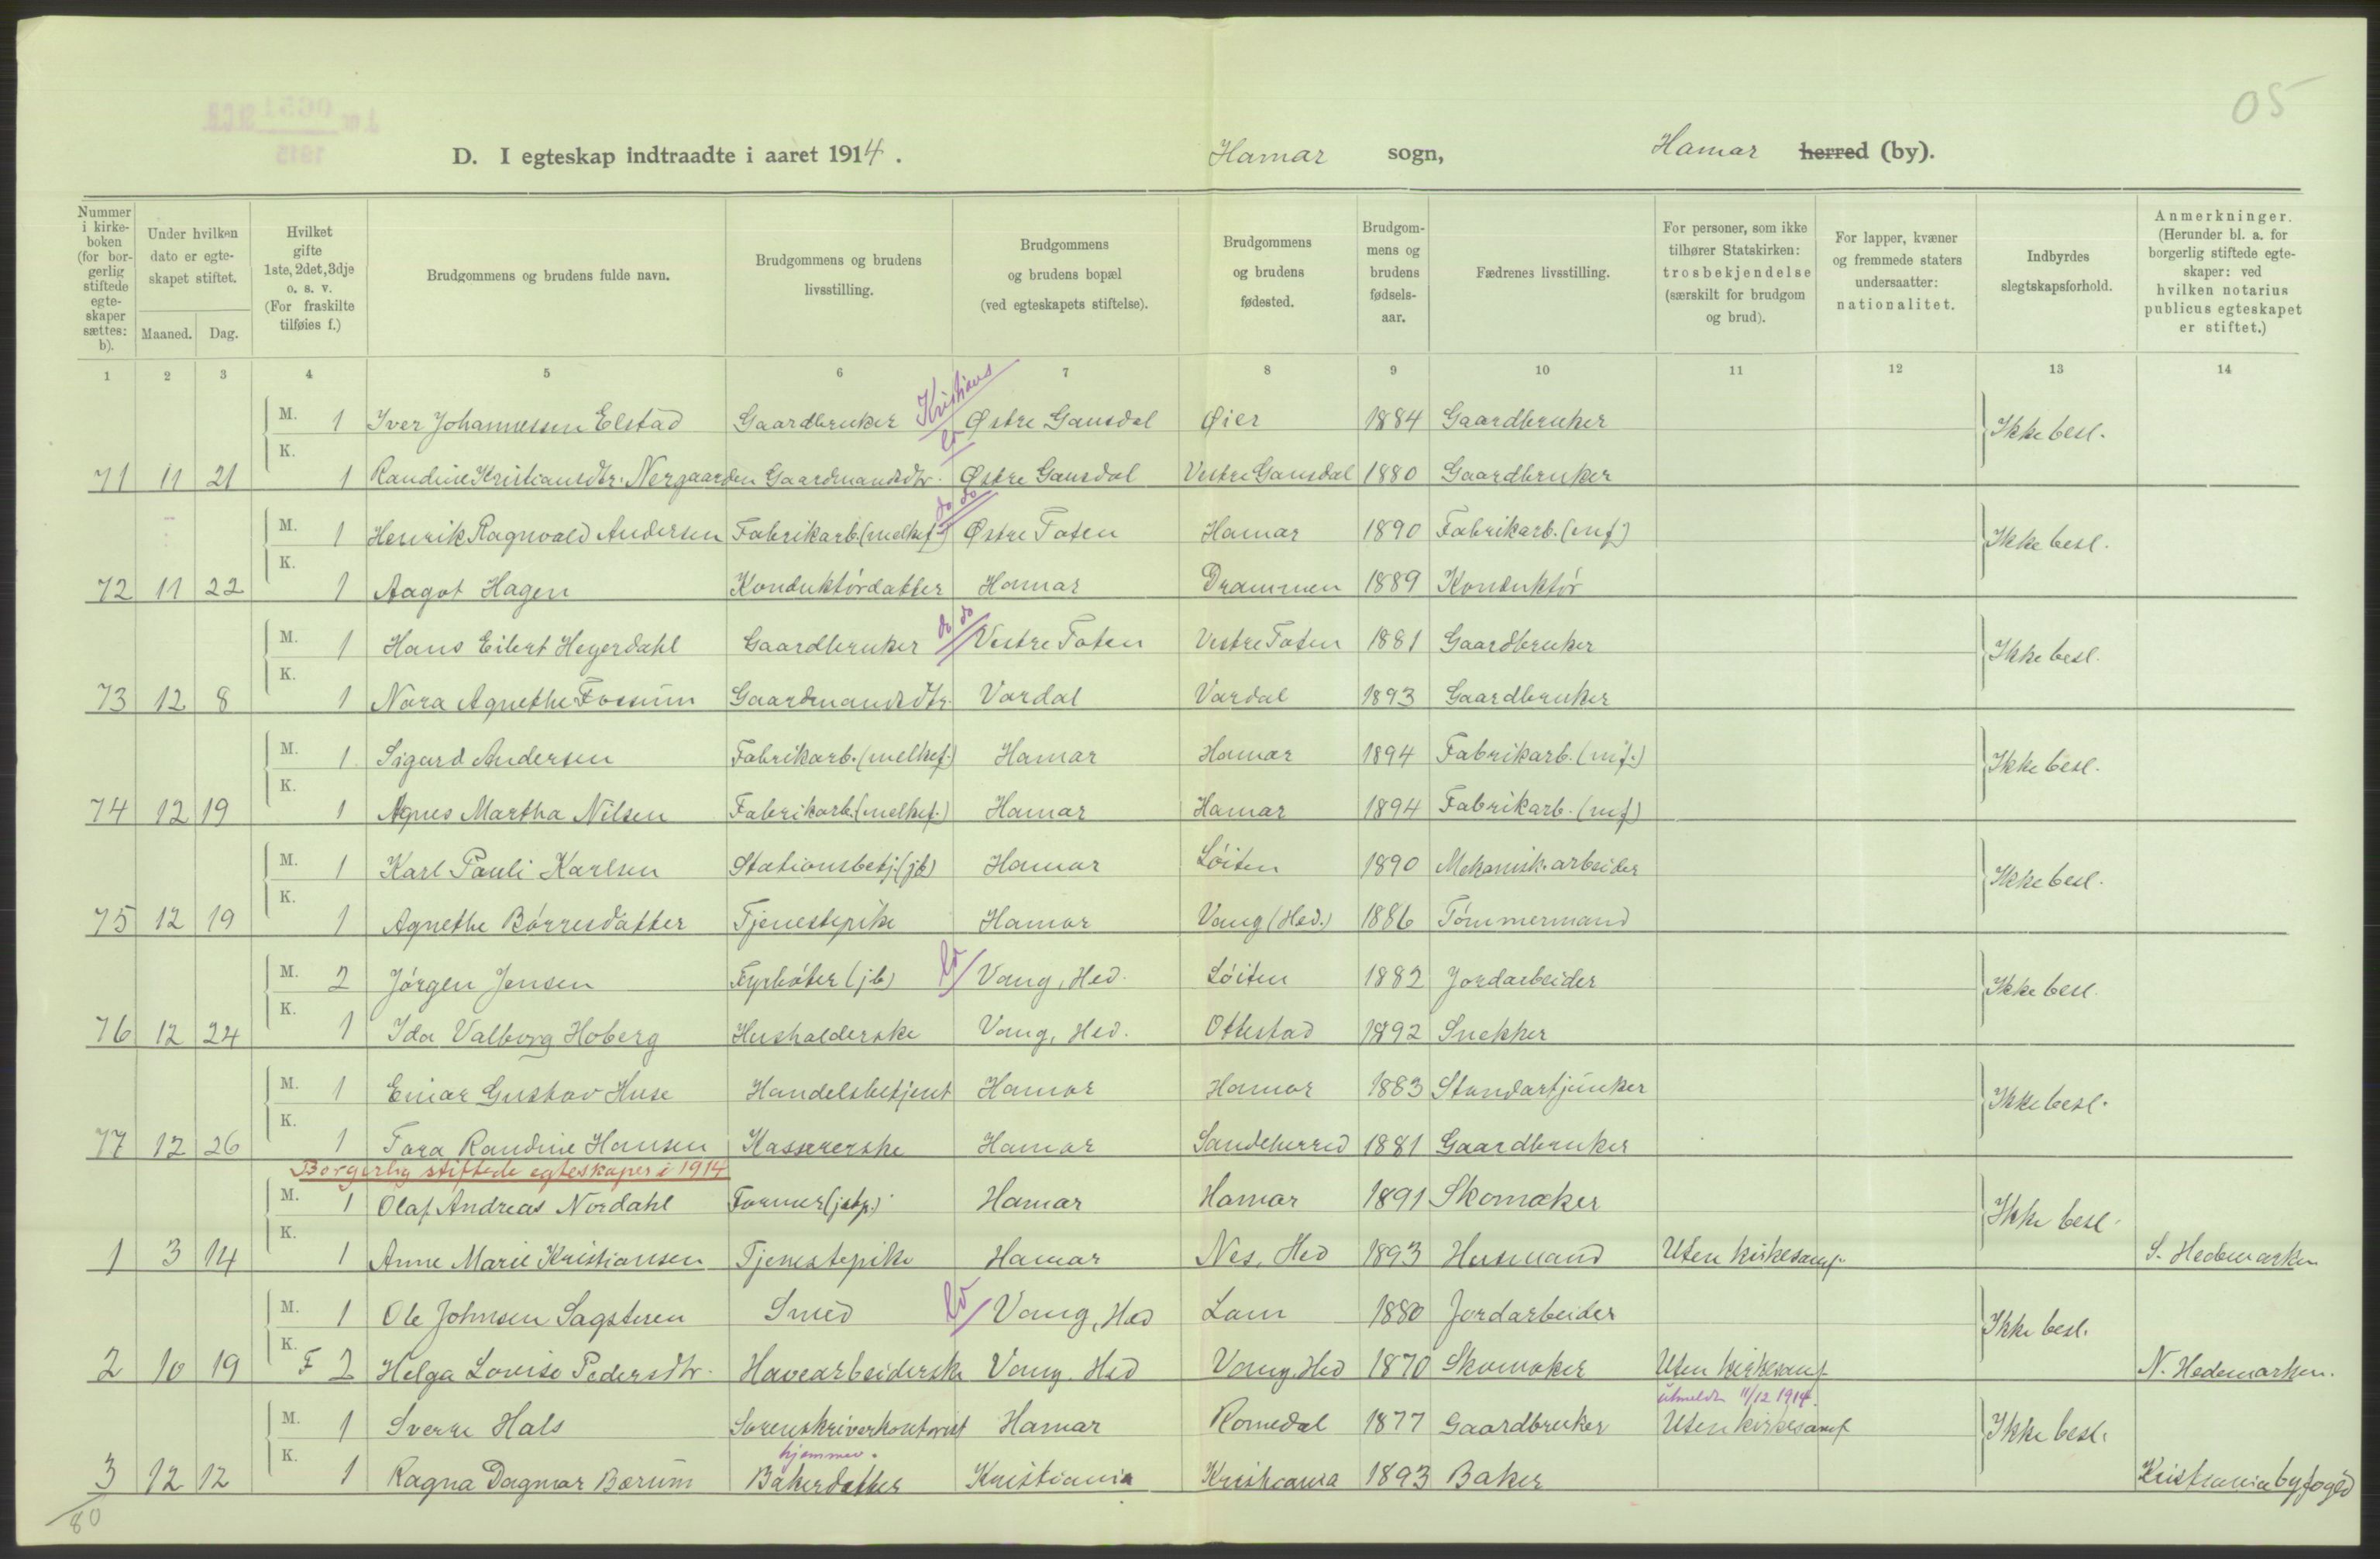 05
D. I egteskap indtraadte i aaret 1914. Hamar sogn, Hamar herred (by).
Nummer i kirkeboken (for borgerlig stiftede egteskaper sættes: b). | Under hvilken dato er egteskapet stiftet. Maaned. Dag. | Hvilket gifte 1ste, 2det, 3dje o. s. v. (For fraskilte tilføies f.) | Brudgommens og brudens fulde navn. | Brudgommens og brudens livsstilling. | Brudgommens og brudens bopæl (ved egteskapets stiftelse). | Brudgommens og brudens fødested. | Brudgommens og brudens fødselsaar. | Fædrenes livsstilling. | For personer, som ikke tilhører Statskirken: trosbekjendelse (særskilt for brudgom og brud). | For lapper, kvæner og fremmede staters undersaatter: nationalitet. | Indbyrdes slegtskapsforhold. | Anmerkninger. (Herunder bl. a. for borgerlig stiftede egteskaper: ved hvilken notarius publicus egteskapet er stiftet.)
1 2 3 4 5 6 7 8 9 10 11 12 13 14
M. 1 Iver Johannessen Elstad Gaardbruker Kristians Østre Gausdal Øier 1884 Gaardbruker Ikke besl.
71 11 21 K. 1 Randine Kristiansdtr. Nergaarden Gaardmandsdtr. Østre Gausdal Vestre Gausdal 1880 Gaardbruker
M. 1 Henrik Ragnvald Andersen Fabrikarb. (melkef.) do do Østre Toten Hamar 1890 Fabrikarb. (mf) Ikke besl.
72 11 22 K. 1 Aagot Hagen Konduktørdatter Hamar Drammen 1889 Konduktør
M. 1 Hans Eilert Hegerdahl Gaardbruker do do Vestre Toten Vestre Toten 1881 Gaardbruker Ikke besl.
73 12 8 K. 1 Nora Agnethe Fossum Gaardmandsdtr. Vardal Vardal 1893 Gaardbruker
M. 1 Sigurd Andersen Fabrikarb. (melkef.) Hamar Hamar 1894 Fabrikarb. (mf.) Ikke besl.
74 12 19 K. 1 Agnes Martha Nilsen Fabrikarb. (melkef.) Hamar Hamar 1894 Fabrikarb. (mf)
M. 1 Karl Pauli Karlsen Stationsbetj. (jb) Hamar Løiten 1890 Mekanisk. arbeider Ikke besl.
75 12 19 K. 1 Agnethe Børresdatter Tjenestepike Hamar Vang (Hed.) 1886 Tømmermand
M. 2 Jørgen Jensen Fyrbøter (jb) Vang, Hed. Løiten 1882 Jordarbeider Ikke besl.
76 12 24 K. 1 Ida Valborg Hoberg Husholderske Vang, Hed. Ottestad 1892 Snekker
M. 1 Einar Gustav Huse Handelsbetjent Hamar Hamar 1883 Standartjunker Ikke besl.
77 12 26 K. 1 Tora Randine Hansen Kassererske Hamar Sandeherred 1881 Gaardbruker
Borgerlig stiftede egteskaper i 1914
M. 1 Olaf Andreas Nordahl Former (jstp.) Hamar Hamar 1891 Skomaker Ikke besl.
1 3 14 K. 1 Anne Marie Kristiansen Tjenestepike Hamar Nes, Hed 1893 Husmand Uten kirkesamf. S. Hedemarken
M. 1 Ole Johnsen Sagstuen Smed Vang, Hed Lom 1880 Jordarbeider Ikke besl.
2 10 19 K. F 2 Helga Lovise Pedersdtr. Havearbeiderske Vang. Hed Vang. Hed 1870 Skomaker Uten kirkesamf. N. Hedemarken.
utmeldt 11/12 1914.
M. 1 Sverre Hals Sorenskriverkontorist Hamar Romedal 1877 Gaardbruker Uten kirkesamf Ikke besl.
hjemmev.
3 12 12 K. 1 Ragna Dagmar Bærum Bakerdatter Kristiania Kristiania 1893 Baker Kristiania byfoged
80